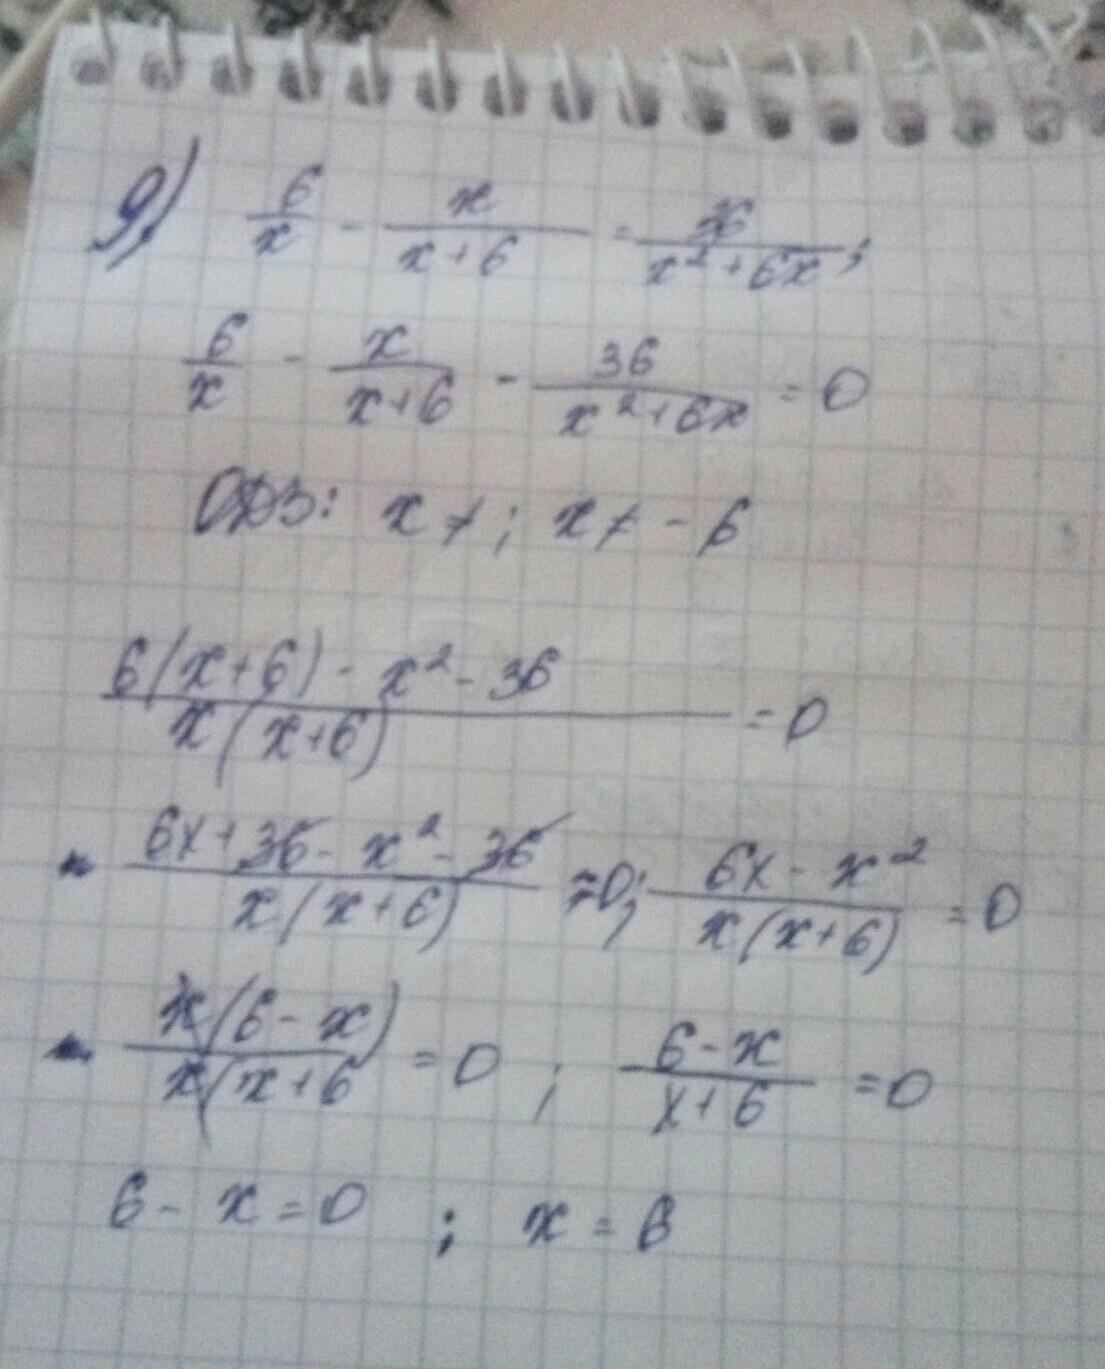 9) 6/x - x/(x+6) = 36/(x²+6x);
6/x - x/(x+6) - 36/(x²+6x) = 0
ОДЗ: x ≠ ; x ≠ -6
(6(x+6) - x² - 36)/(x(x+6)) = 0
(6x+36 - x² - 36)/(x(x+6)) = 0; (6x - x²)/(x(x+6)) = 0
x(6-x)/(x(x+6) = 0 ; (6-x)/(x+6) = 0
6 - x = 0 ; x = 6